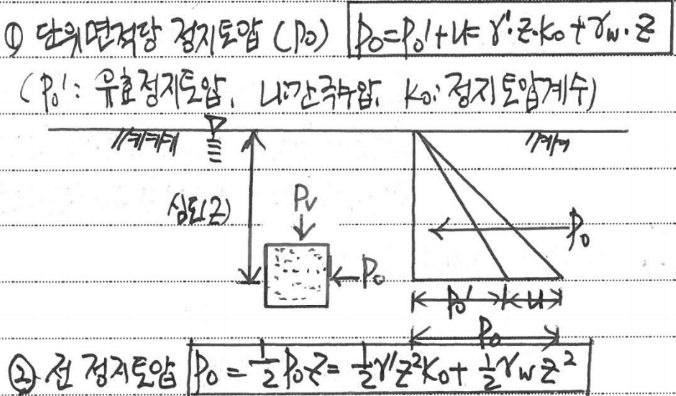 ① 단위면적당 정지토압 (P₀) P₀=P₀'+u= γ'·Z·K₀+γw·Z
(P₀': 유효정지토압, u:간극수압, K₀: 정지토압계수)
심도(Z)
Pv
P₀
P₀
P₀' u
P₀
② 전 정지토압 P₀ = 1/2 P₀·Z = 1/2 γ'Z²K₀ + 1/2 γw Z²